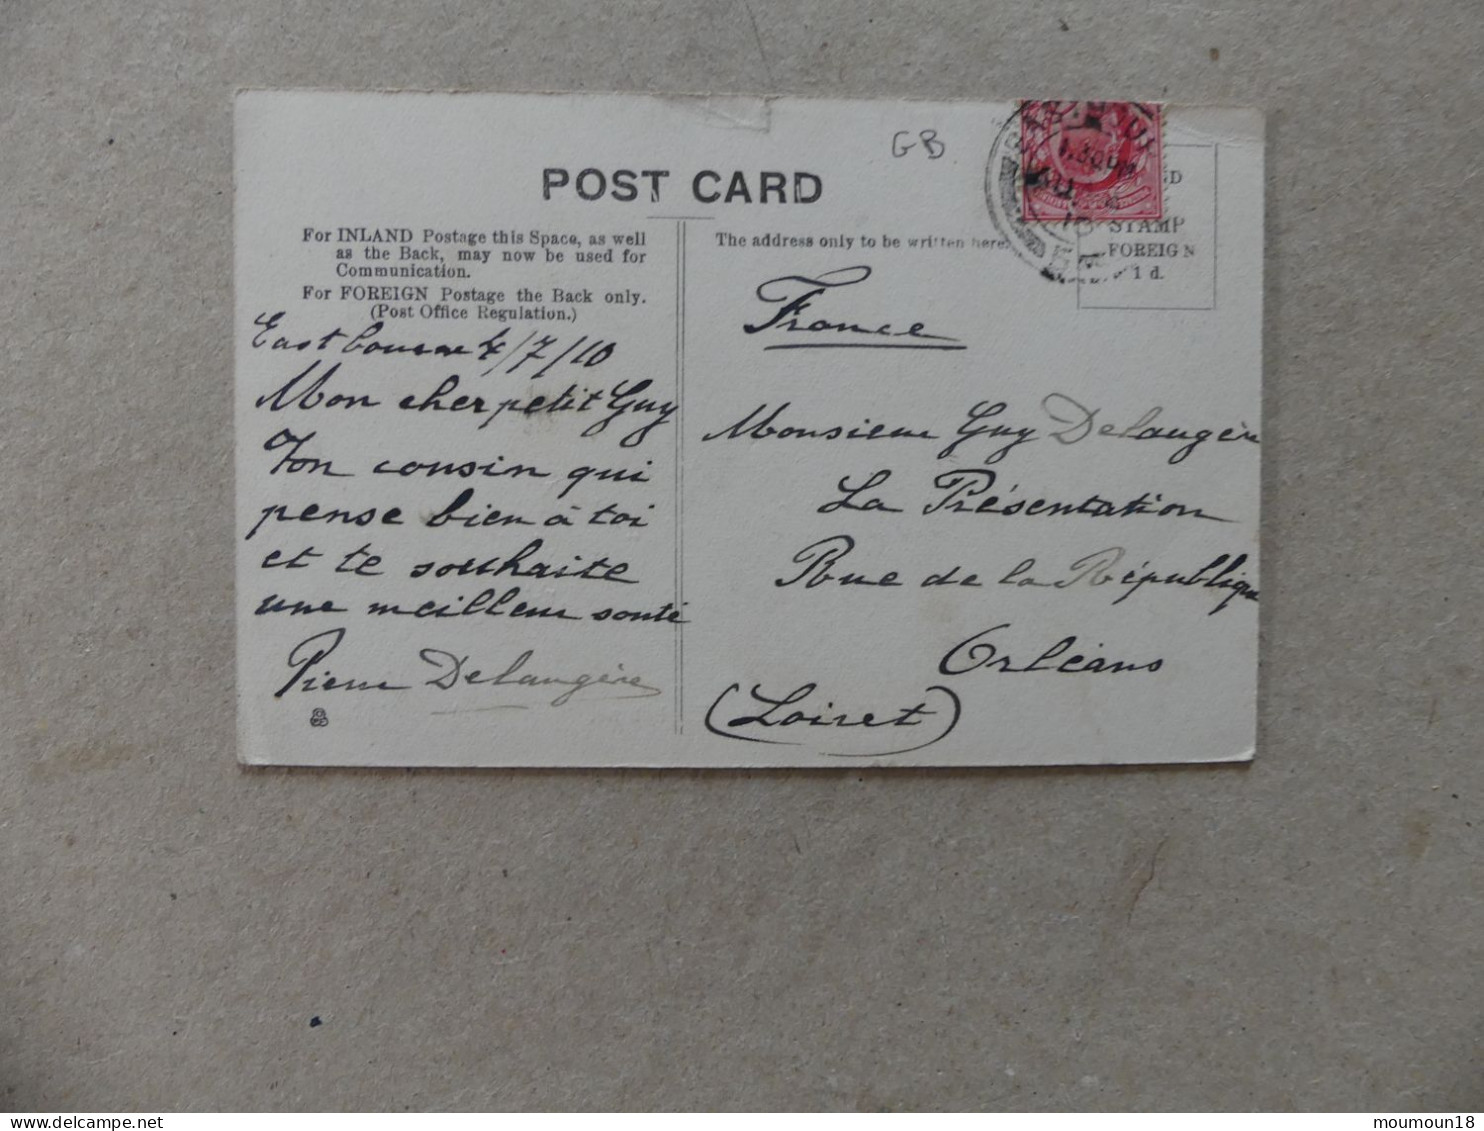 GB
POST CARD
For INLAND Postage this Space, as well
as the Back, may now be used for
Communication.
For FOREIGN Postage the Back only.
(Post Office Regulation.)
The address only to be written here.
STAMP
FOREIGN
1 d.
Eastbourne 4/7/10
Mon cher petit Guy
Ton cousin qui
pense bien à toi
et te souhaite
une meilleur santé
Pierre Delaugère
France
Monsieur Guy Delaugère
La Présentation
Rue de la République
Orléans
(Loiret)
moumoun18